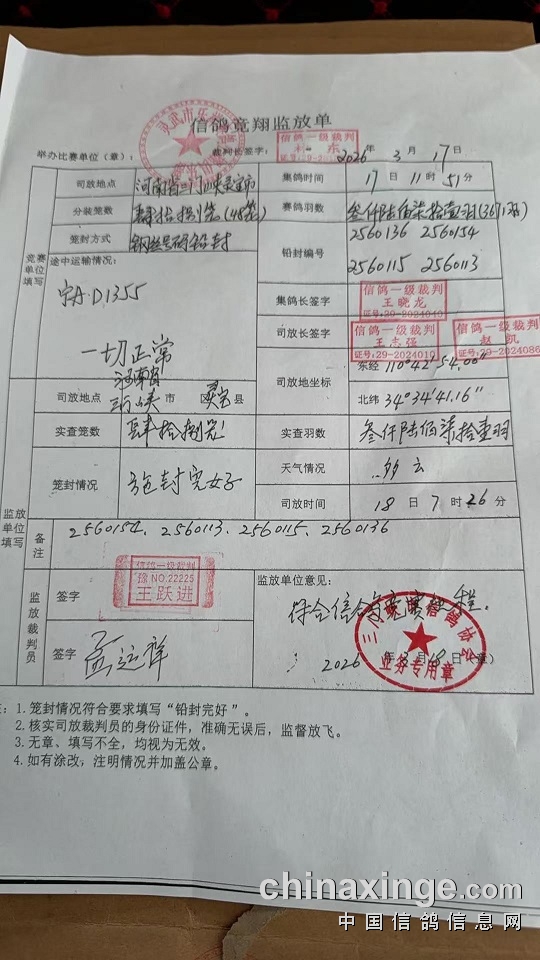 信鸽竞翔监放单
灵武市
举办比赛单位（章）： 裁判长签字： 信鸽一级裁判 2026年 3 月 17日
司放地点 河南省三门峡灵宝市 集鸽时间 17日 11时 51分
分装笼数 肆拾捌笼(48笼) 赛鸽羽数 叁仟陆佰柒拾壹羽(3671羽)
笼封方式 钢丝号码铅封 铅封编号 2560136 2560154
2560115 2560113
竞赛单位填写
途中运输情况：
宁A·D1355
一切正常
集鸽长签字 信鸽一级裁判 王晓龙 证号:29-2024010
司放长签字 信鸽一级裁判 王志强 证号:29-2024010 信鸽一级裁判 赵凯 证号:29-2024086
司放地坐标 东经 110°42′54.00″
北纬 34°34′41.16″
河南省
司放地点 三门峡市 灵宝县
实查笼数 肆拾捌笼 实查羽数 叁仟陆佰柒拾壹羽
笼封情况 铅封完好 天气情况 多云
司放时间 18日 7时26分
监放单位填写
备注 2560154、2560113、2560115、2560136
监放裁判员
签字 信鸽一级裁判 豫NO.22225 王跃进
签字 孟运祥
监放单位意见：
符合信鸽竞翔规程.
三门峡市信鸽协会 业务专用章
2026年3月18日（章）
注：1.笼封情况符合要求填写“铅封完好”。
2.核实司放裁判员的身份证件，准确无误后，监督放飞。
3.无章、填写不全，均视为无效。
4.如有涂改，注明情况并加盖公章。
chinaxinge.com
中国信鸽信息网